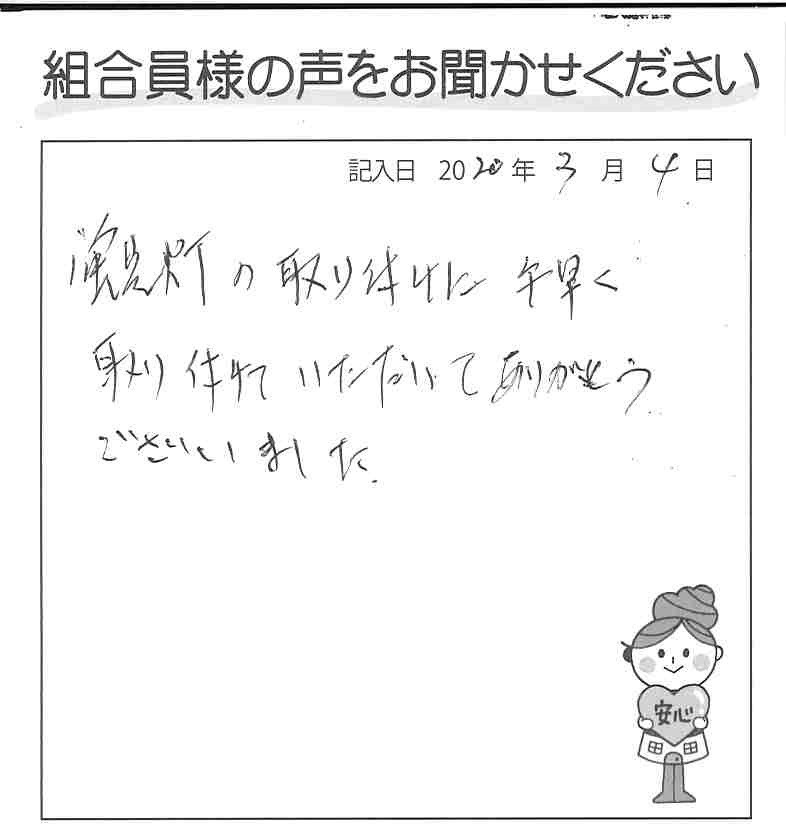 組合員様の声をお聞かせください
記入日 2020年 3月 4日
灯の取り付けに 手早く
取り付けて いただいて ありがとう
ございました.
安心